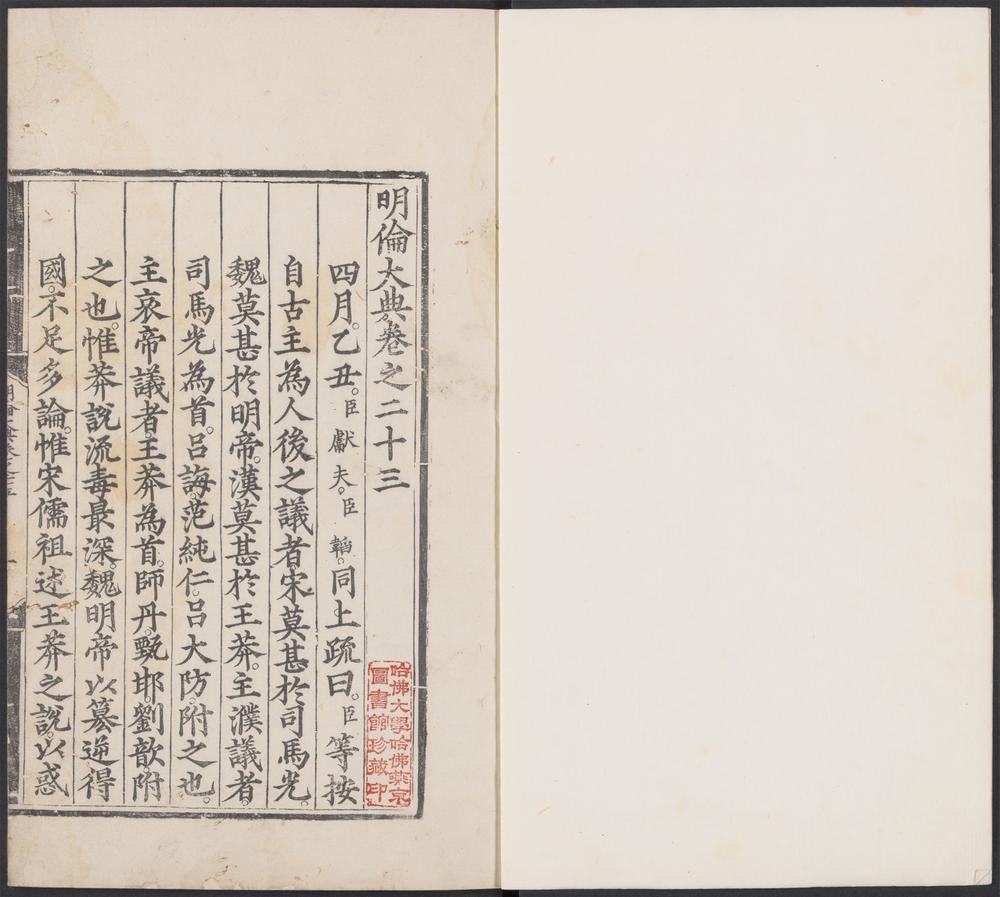 明倫大典卷之二十三
四月。乙丑。臣獻夫。臣韜。同上疏曰。臣等按
自古主為人後之議者。宋莫甚於司馬光。
魏莫甚於明帝。漢莫甚於王莽。主濮議者。
司馬光為首。呂誨。范純仁。呂大防。附之也。
主哀帝議者。王莽為首。師丹。甄邯。劉歆附
之也。惟莽說流毒最深。魏明帝以篡逆得
國。不足多論。惟宋儒祖述王莽之說。以惑
哈佛大學哈佛燕京
圖書館珍藏印